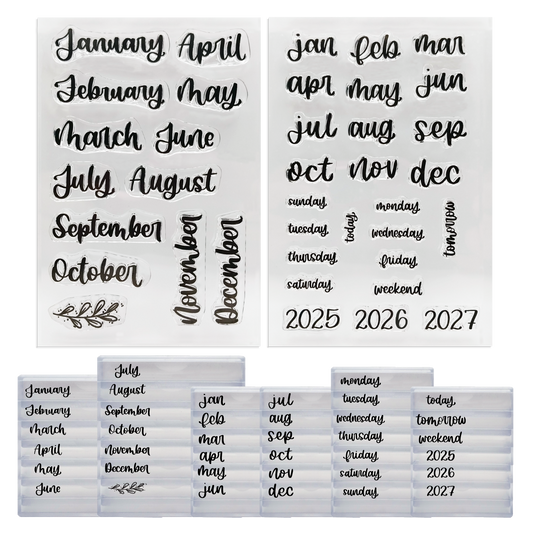 January April
February May
March June
July August
September
October
November
December
jan feb mar
apr may jun
jul aug sep
oct nov dec
sunday
tuesday
thursday
saturday
today
monday
wednesday
friday
weekend
tomorrow
2025 2026 2027
January
February
March
April
May
June
July
August
September
October
November
December
jan
feb
mar
apr
may
jun
jul
aug
sep
oct
nov
dec
monday
tuesday
wednesday
thursday
friday
saturday
sunday
today
tomorrow
weekend
2025
2026
2027